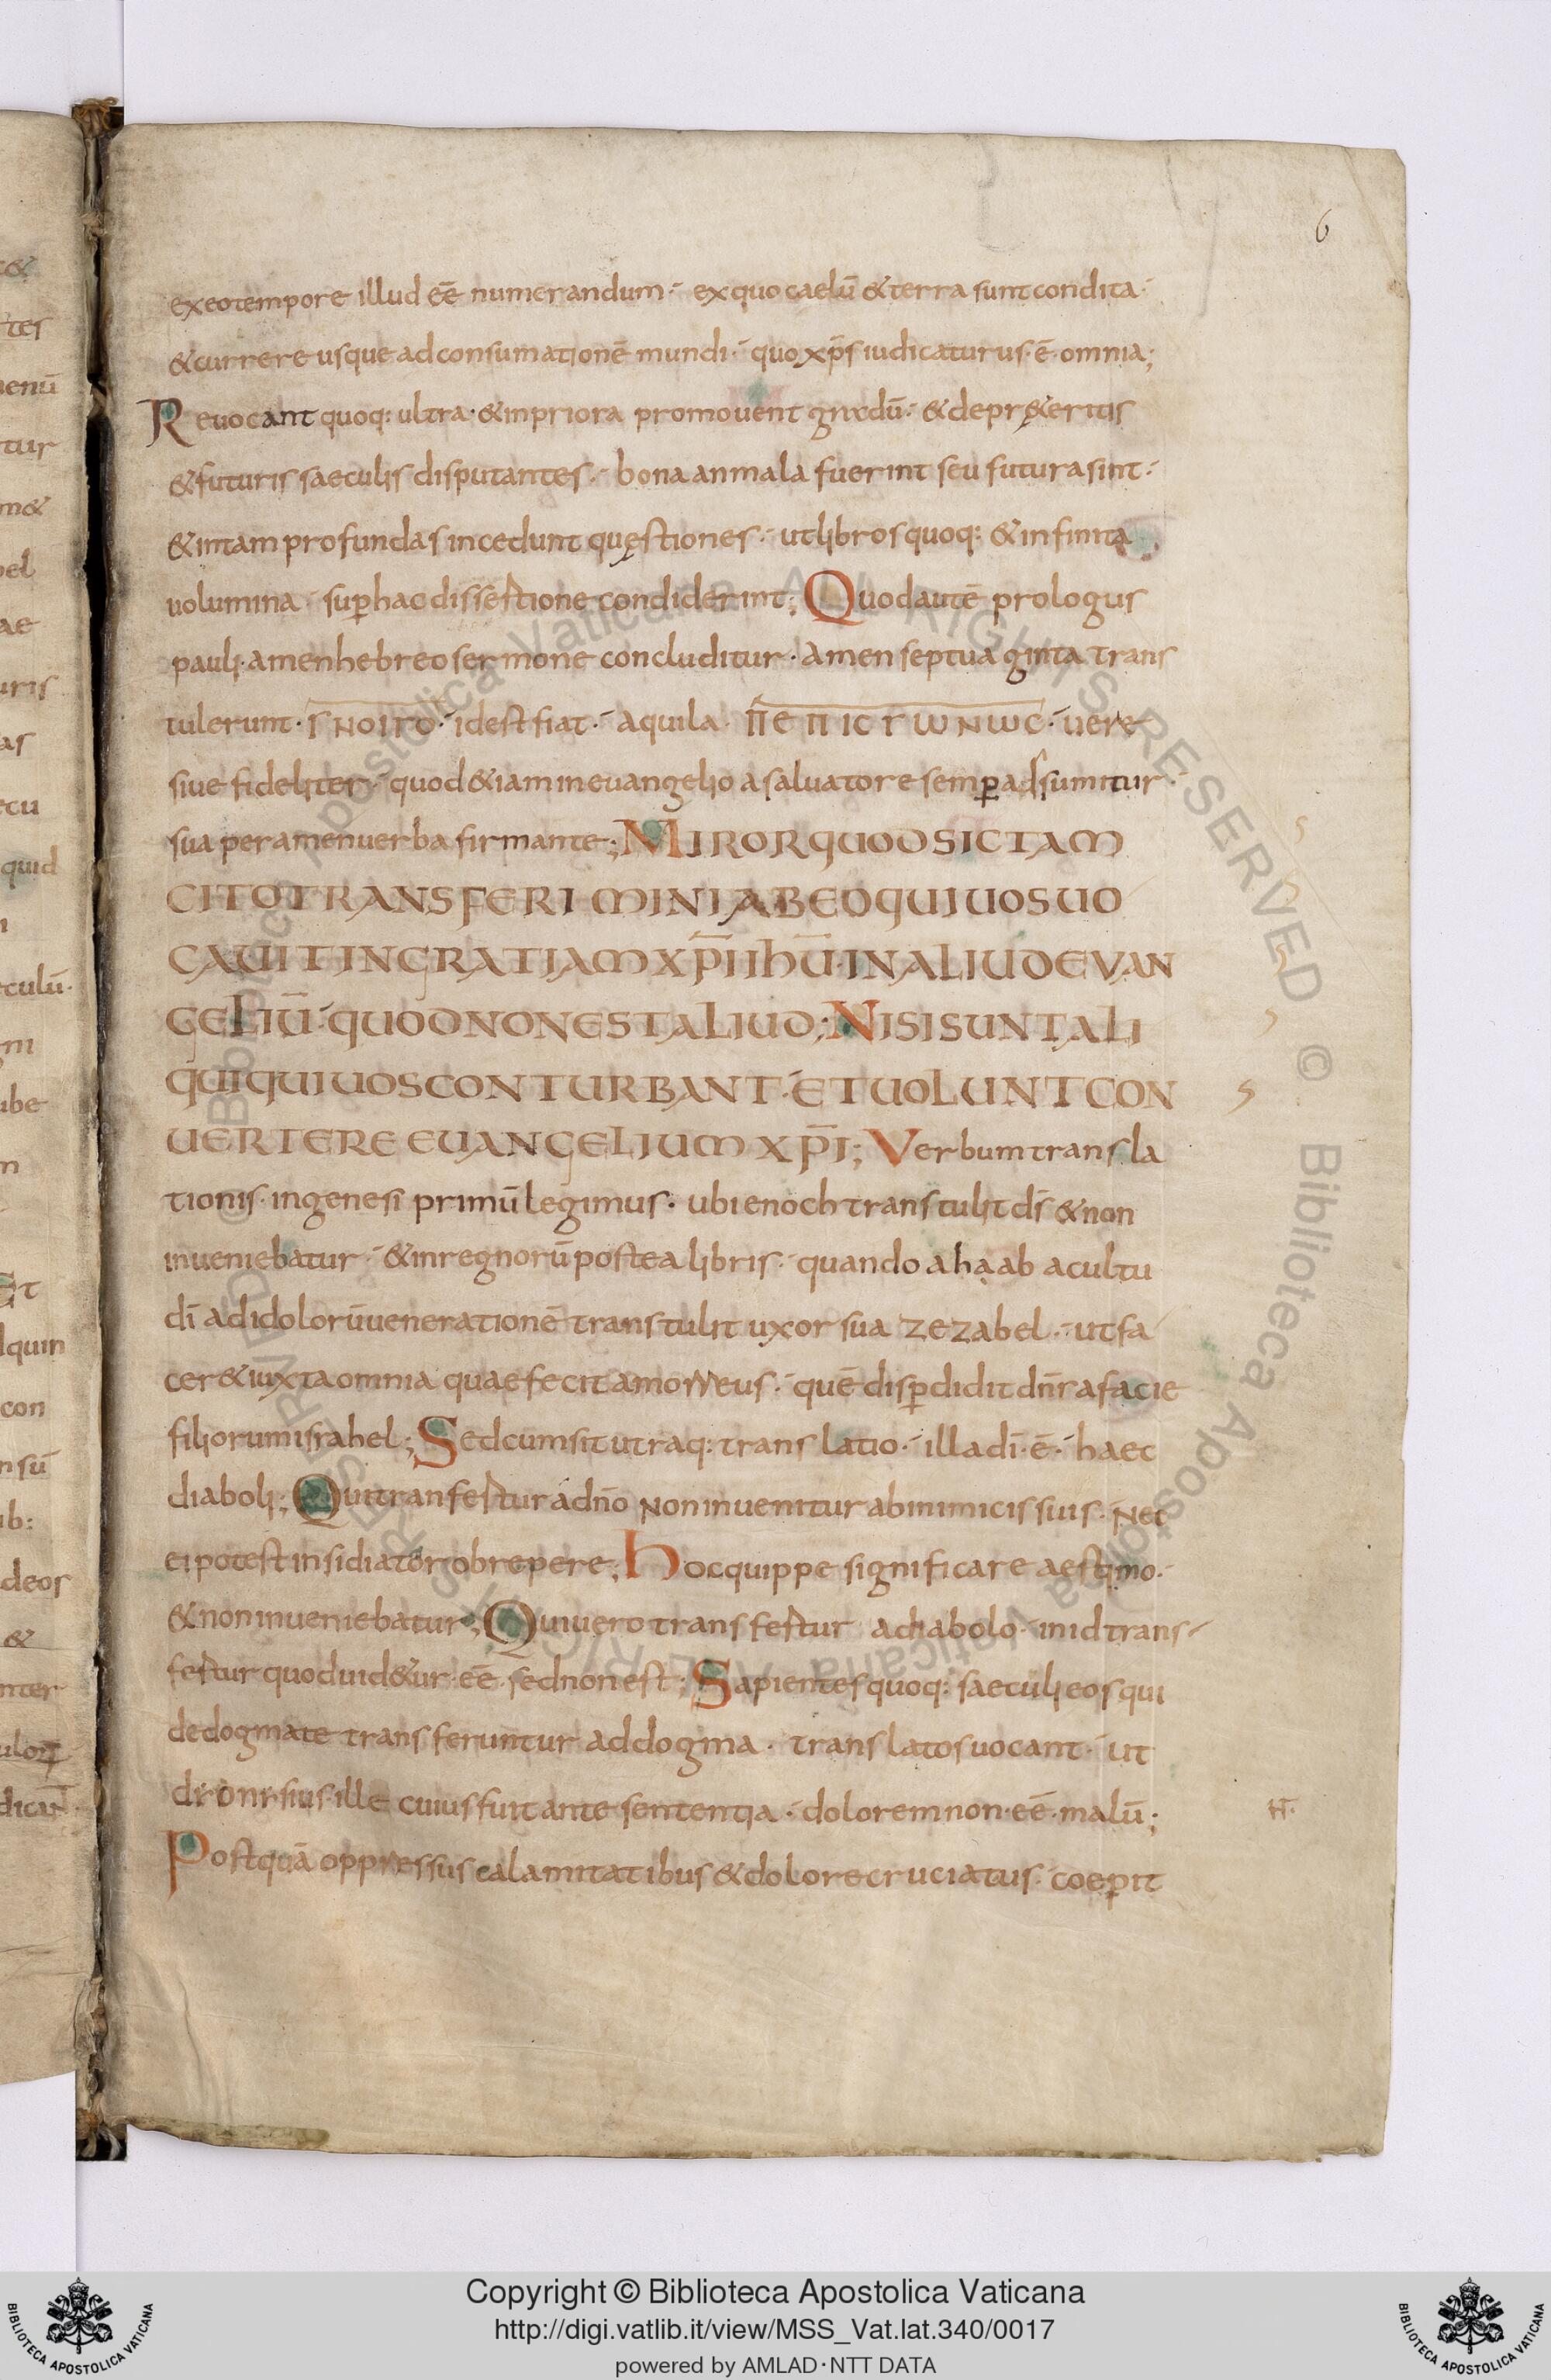 6
ex eo tempore illud eē numerandum · ex quo caelū & terra sunt condita ·
& currere usque ad consumationē mundi · quo xp̄s iudicaturus · ē · omnia ;
Reuocant quoq: ultra · & in priora promouent gradū · & de pręteritis
& futuris saeculis disputantes · bona an mala fuerint seu futura sint ·
& in tam profundas incedunt quęstiones · ut libros quoq: & infinita
uolumina · sup̄ hac dissertione condiderint ; Quod autē prologus
pauli · amen hebreo sermone concluditur · amen septuaginta trans
tulerunt · ΓΗΟΙΤΟ · id est fiat · aquila · ΠΕΠΙCΤWΝWC · uere
siue fideliter · quod &iam in euangelio a saluatore semp̄ adsumitur ·
sua per amen uerba firmante ; MIROR QUOD SIC TAM
CITO TRANSFERIMINI AB EO QUI UOS UO
CAUIT IN GRATIAM XP̄I IHŪ · IN ALIUD EVAN
GELIŪ · QUOD NON EST ALIUD ; NISI SUNT ALI
QUI QUI UOS CONTURBANT · ET UOLUNT CON
UERTERE EUANGELIUM XP̄I ; Verbum transla
tionis · in genesi primū legimus · ubi enoch transtulit dś & non
inueniebatur · & in regnorū postea libris · quando ahaab a cultu
dī ad idolorū uenerationē transtulit uxor sua zezabel · ut fa
cer& iuxta omnia quae fecit amorreus · quē disp̄didit dn̄s a facie
filiorum israhel ; Sed cum sit utraq: translatio · illa dī · ē · haec
diaboli ; Qui transfertur a dn̄o non inuenitur ab inimicis suis · Nec
ei potest insidiator obrepere ; Hoc quippe significare aestimo ·
& non inueniebatur ; Qui uero transfertur a diabolo · in id trans
fertur quod uid&ur · eē · sed non est ; Sapientes quoq: saeculi eos qui
de dogmate transferuntur ad dogma · translatos uocant · ut
dionisius ille cuius fuit ante sententia · dolorem non · eē · malū ;
Postquā oppressus calamitatibus & dolore cruciatus · coep̄it
Copyright © Biblioteca Apostolica Vaticana
http://digi.vatlib.it/view/MSS_Vat.lat.340/0017
powered by AMLAD · NTT DATA
BIBLIOTECA APOSTOLICA VATICANA
BIBLIOTECA APOSTOLICA VATICANA